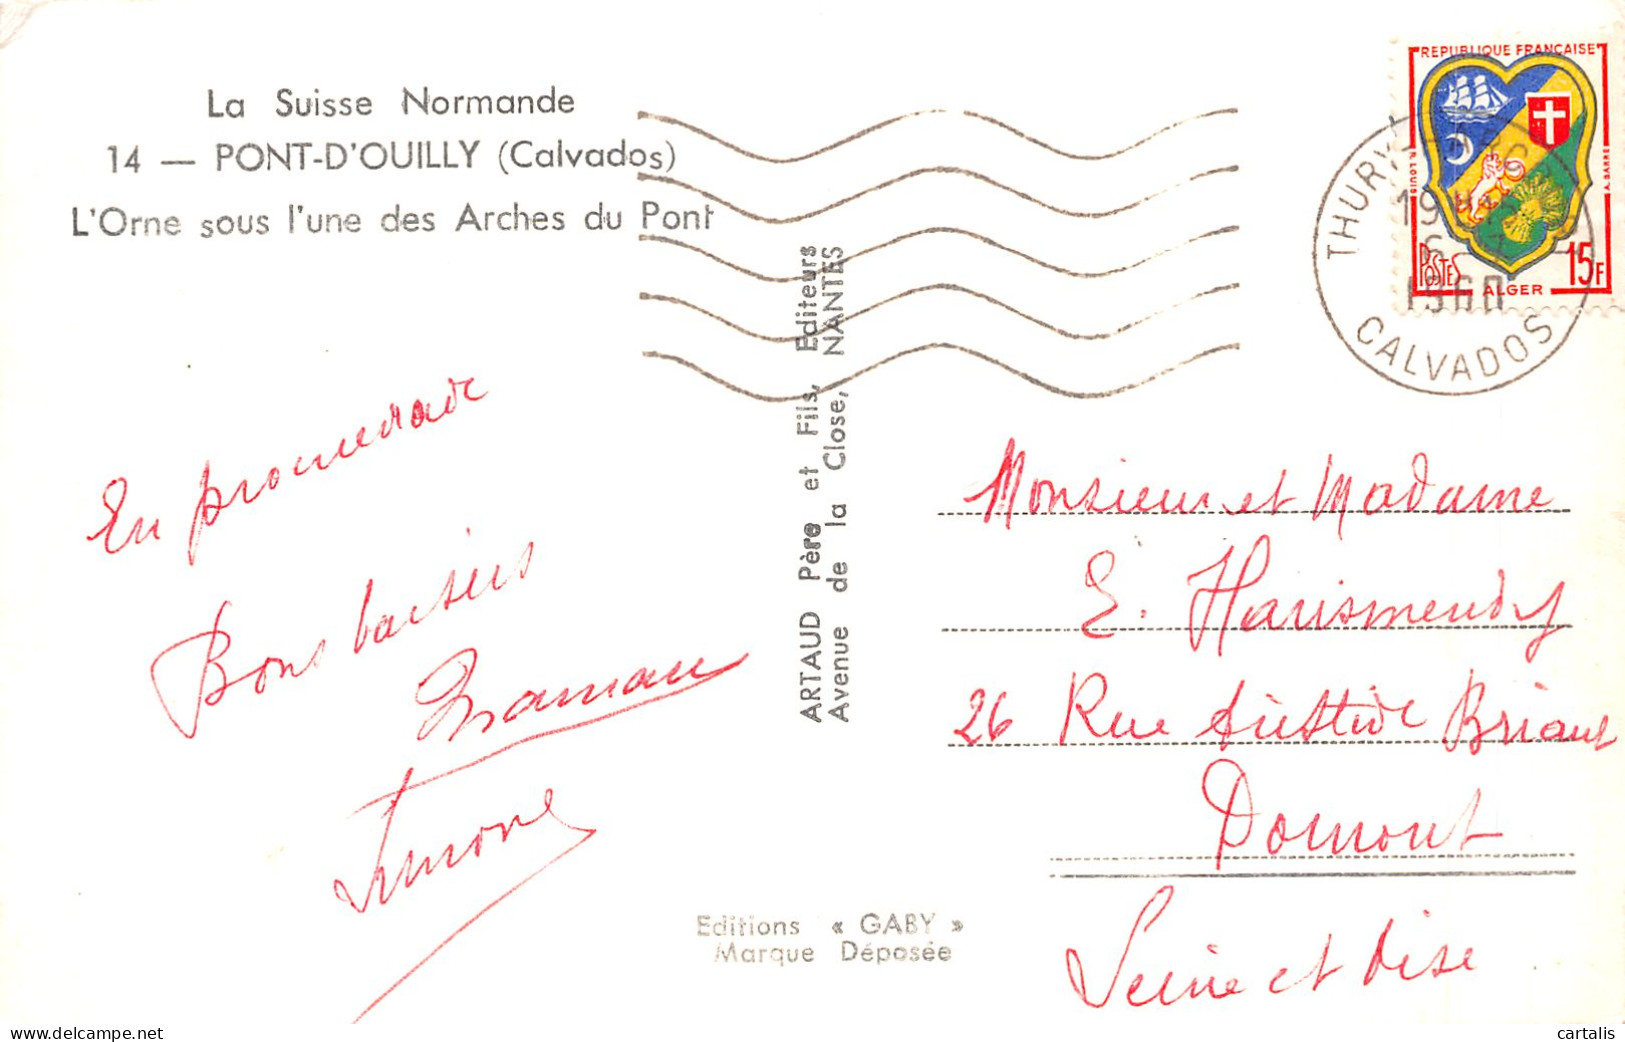 La Suisse Normande
14 — PONT-D'OUILLY (Calvados)
L'Orne sous l'une des Arches du Pont
En promenade
Bons baisers
Maman
Simone
ARTAUD Père et Fils, Editeurs
Avenue de la Close, NANTES
Editions « GABY »
Marque Déposée
REPUBLIQUE FRANÇAISE
R. LOUIS
A. BARRE
POSTES
15F
ALGER
THURY-HARCOURT
19H
6
1960
CALVADOS
Monsieur et Madame
E. Harismendy
26 Rue Aristide Briant
Domont
Seine et Oise
www.delcampe.net
cartalis